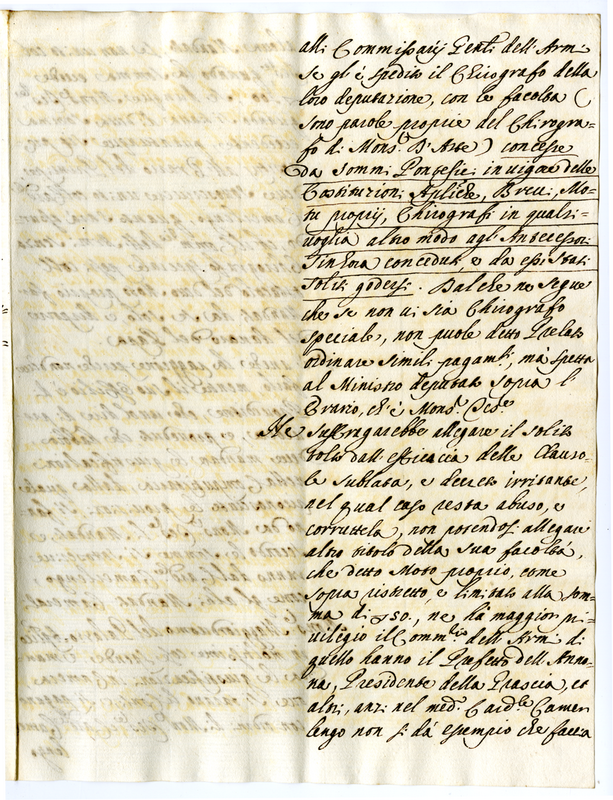 alli Commissarij Gen.li dell'Armi
se gl'è spedito il Chirografo della
loro deputazione, con le facoltà (
sono parole proprie del Chirogra=
fo di Mons.r D'Aste) concesse
da Sommi Pontefici in vigore delle
Costituzioni Apl'iche, Brevi, Mo=
tu proprij, Chirografi in qualsi=
voglia altro modo agl'Antecessori
Sin'hora conceduti, e da essi stati
soliti godersi. Dal che ne segue
che se non vi sia Chirografo
speciale, non puole detto Prelato
ordinare simili pagam.ti, mà spetta
al Ministro deputato sopra l'
Erario, ch'è Mons.r Tes.re
Ne suffragarebbe allegare il solito
tolto dall'efficacia della Clauso=
le sublata, e decreto irritante,
nel qual caso resta abuso, e
corruttela, non potendosi allegare
altro titolo della sua facoltà,
che detto Moto proprio, come
sopra ristretto, e limitato alla som=
ma di 50., ne hà maggior pri=
vilegio il Comm.rio dell'Armi di
quello hanno il Prefetto dell'Anno=
na, Presidente della Grascia, et
altri, anzi nel med.o Card.le Camer
lengo non si dà esempio che faccia